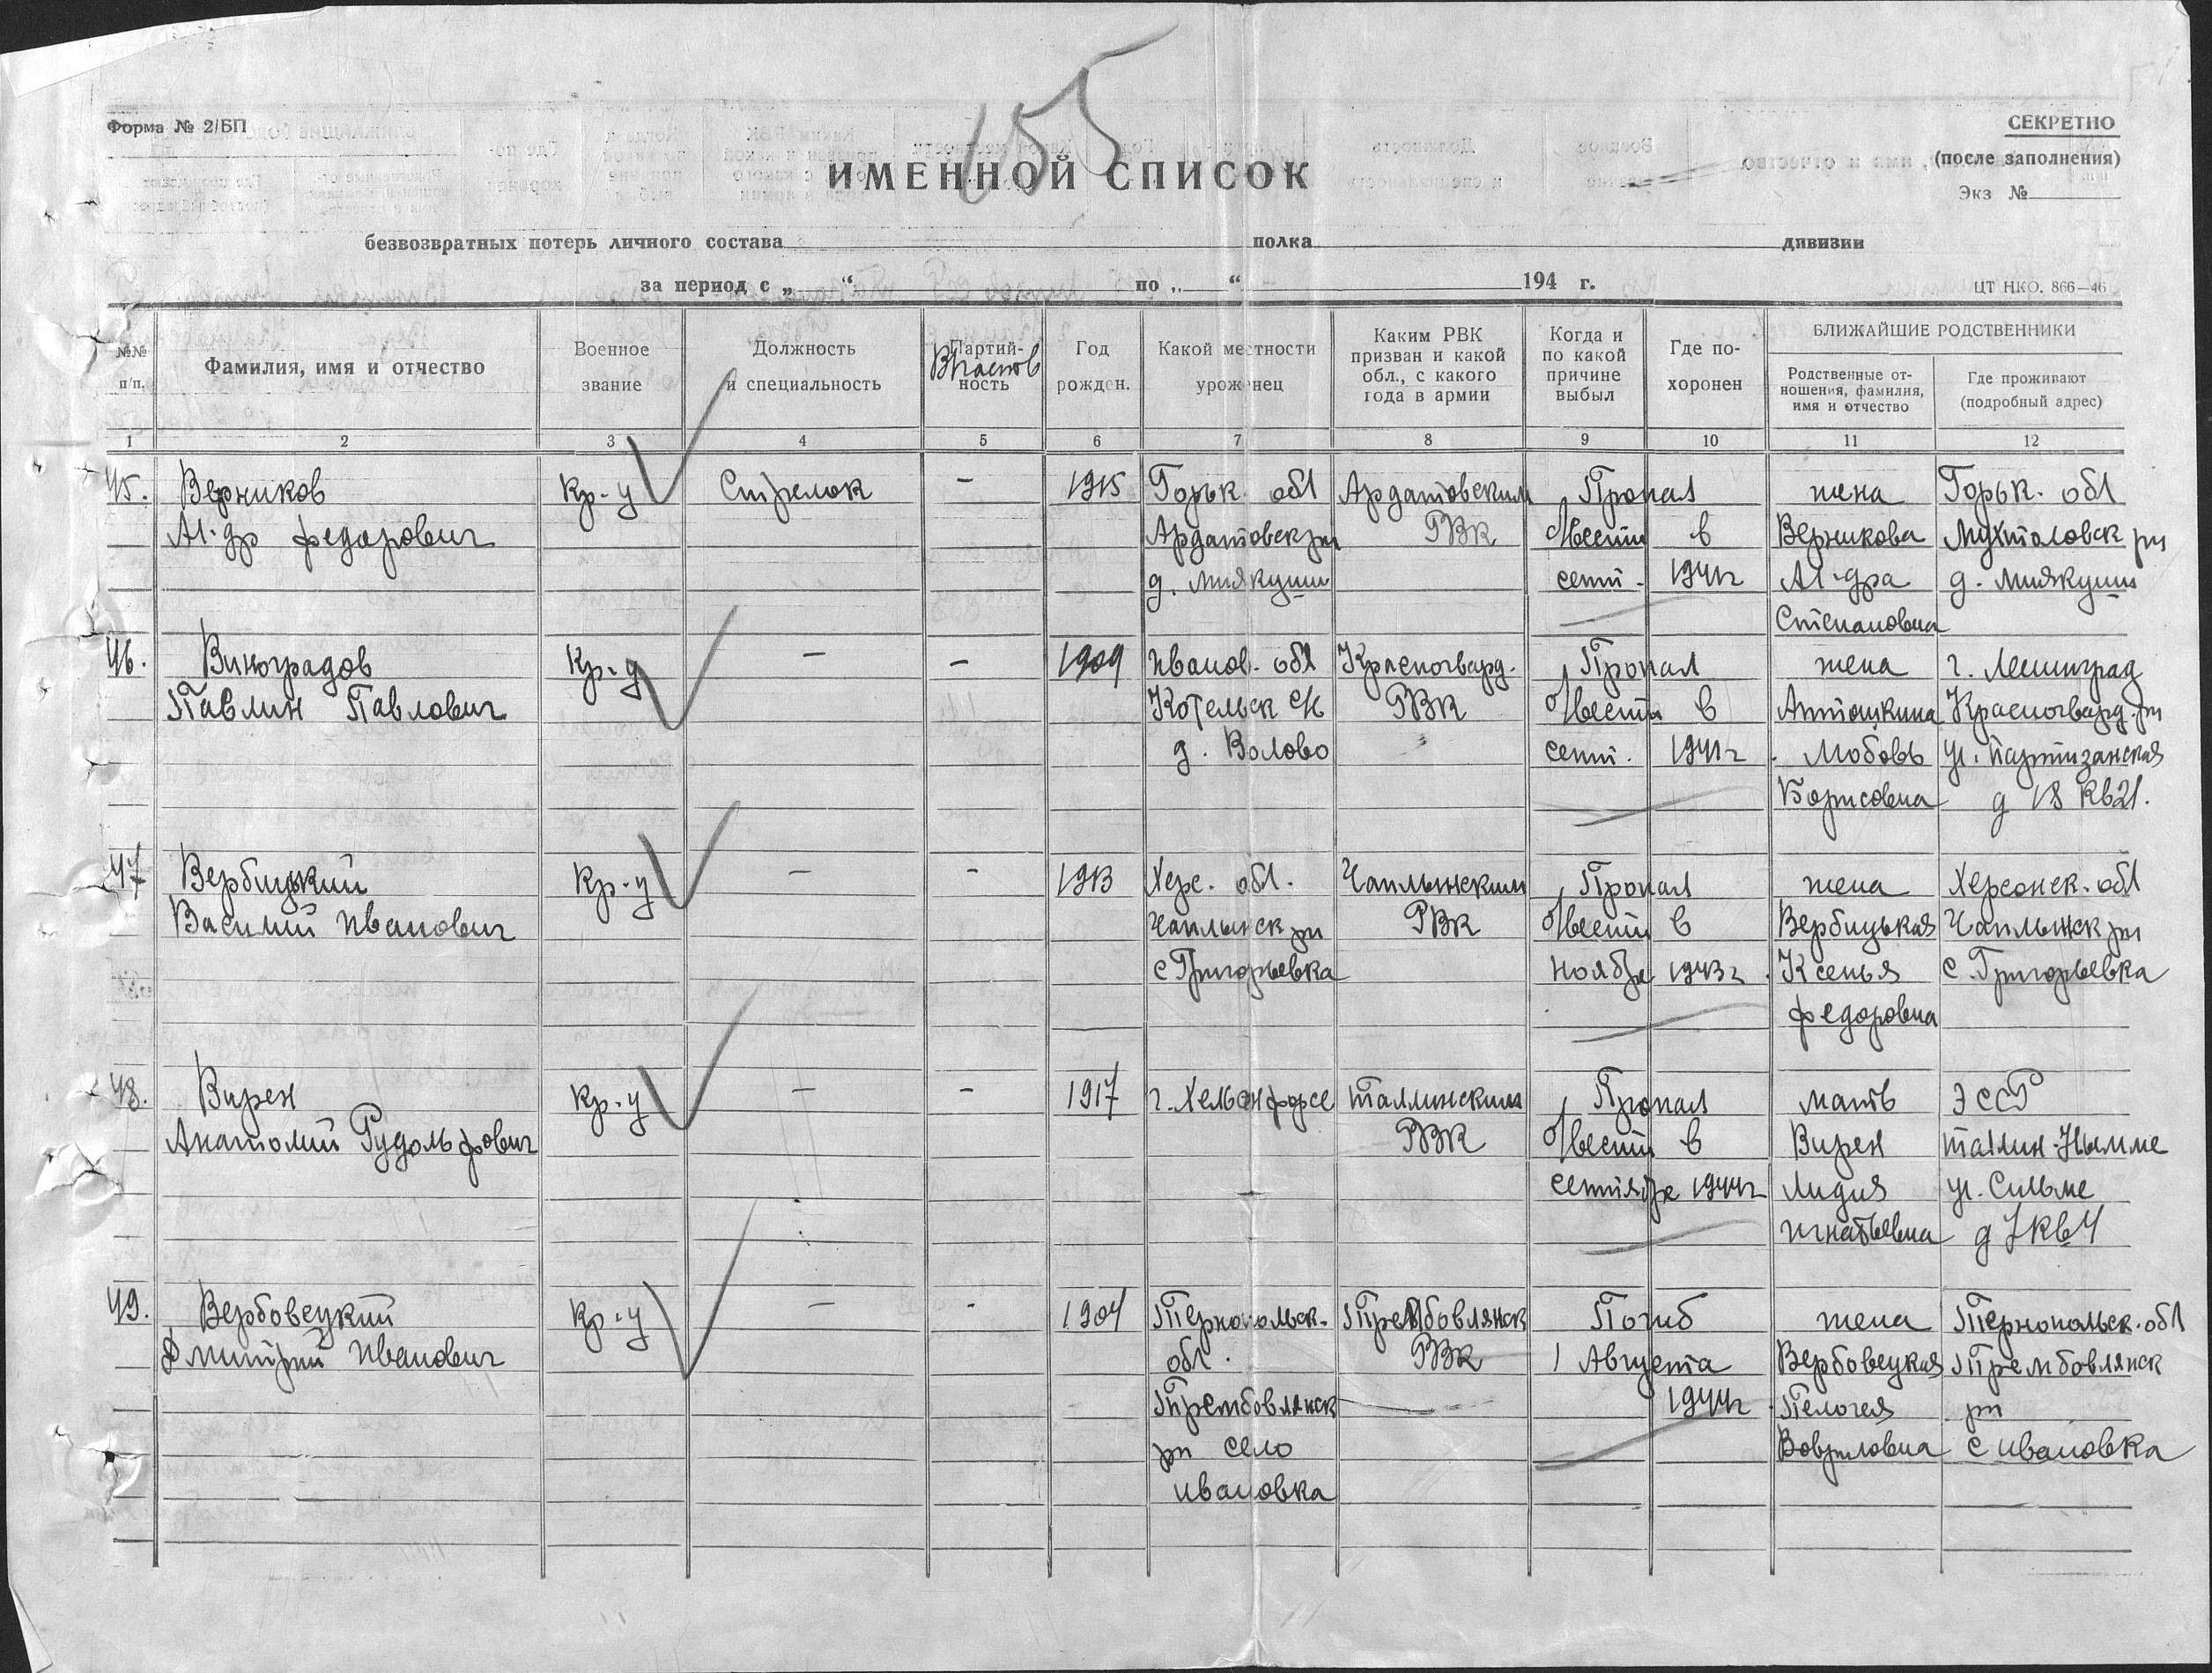 155
Форма № 2/БП
СЕКРЕТНО
(после заполнения)
Экз №
ИМЕННОЙ СПИСОК
безвозвратных потерь личного состава полка дивизии
за период с „ “ по „ “ 194 г.
ЦТ НКО. 866—46
№№ п/п.
Фамилия, имя и отчество
Военное звание
Должность и специальность
Партийность
Год рожден.
Какой местности уроженец
Каким РВК призван и какой обл., с какого года в армии
Когда и по какой причине выбыл
Где похоронен
БЛИЖАЙШИЕ РОДСТВЕННИКИ
Родственные отношения, фамилия, имя и отчество
Где проживают (подробный адрес)
1 2 3 4 5 6 7 8 9 10 11 12
45. Верников Кр-ц Стрелок - 1915 Горьк. обл Ардатовским Пропал жена Горьк. обл
Ал-др Федорович Ардатовск рн РВК б/вести в Верникова Мухтоловск рн
д. Миякуши сент. 1941г Ал-дра д. Миякуши
Степановна
46. Виноградов Кр-ц - - 1909 Иванов. обл Красногвард. Пропал жена г. Ленинград
Павлин Павлович Котельск с/с РВК б/вести в Антошкина Красногвард. рн
д. Волово сент. 1941г. Любовь ул. Партизанская
Борисовна д 18 кв21.
47 Вербицкий Кр-ц - - 1913 Херс. обл. Чаплынским Пропал жена Херсонск. обл
Василий Иванович Чаплынск рн РВК б/вести в Вербицькая Чаплынск рн
с Григорьевка Ноябре 1943г. Ксенья с. Григорьевка
Федоровна
48. Вирен Кр-ц - - 1917 г. Хельсинфорсе Таллинским Пропал мать ЭССР
Анатолий Рудольфович РВК б/вести в Вирен Таллин-Нымме
сентябре 1944г Лидия ул. Сильме
Игнатьевна д 7 кв 4
49. Вербовецкий Кр-ц - - 1904 Тернопольск. Трембовлянск Погиб жена Тернопольск. обл
Дмитрий Иванович обл. РВК 1 Августа Вербовецкая Трембовлянск
Трембовлянск 1944г. Пелогея рн
рн село Вовриловна с Ивановка
Ивановка